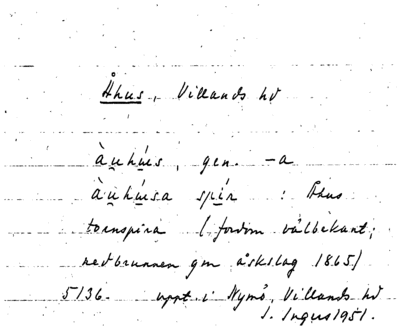 Åhus, Villands hd
àu̯hú̯s, gen. -a
àu̯hú̯sa spír : Åhus
tornspira (fordom välbekant;
nedbrunnen gm åskslag 1865)
5136. uppt. i Nymö, Villands hd
1951.